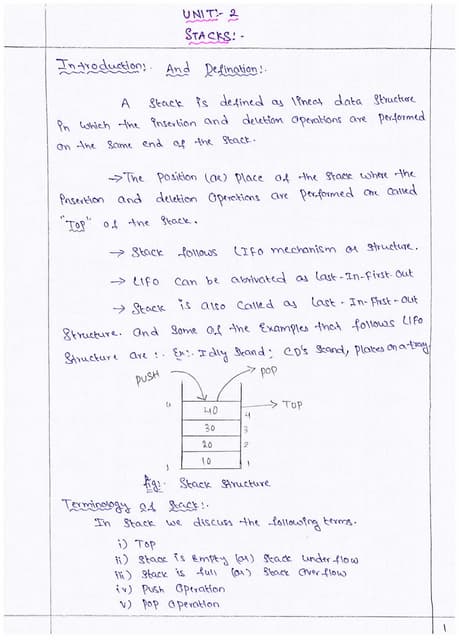 UNIT:- 2
STACKS:-
Introduction:. And Defination:.
A Stack is defined as linear data structure
in which the insertion and deletion operations are performed
on the same end of the Stack.
→The position (or) place of the stack where the
insertion and deletion operations are performed are called
"Top" of the Stack.
→ Stack follows LIFO mechanism or structure.
→ LIFO can be abrivated as Last-In-First Out
→ Stack is also called as Last-In-First-Out
Structure. and some of the Examples that follows LIFO
Structure are :. Ex:. Idly Stand; CD's Stand, plates on a tray
PUSH
POP
40
TOP
4
30
3
20
2
10
1
fig:. Stack structure
Terminology of Stack:.
In Stack we discuss the following terms.
i) Top
ii) Stack is Empty (or) Stack underflow
iii) Stack is full (or) Stack overflow
iv) Push Operation
v) Pop Operation
1